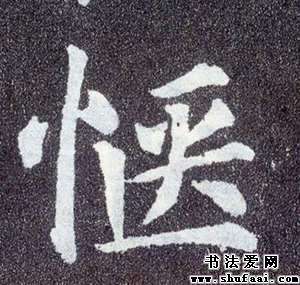 惬
书法爱网
www.shufaai.com